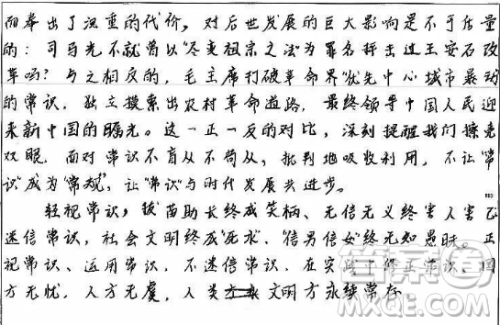 而奉出了沉重的代价，对后世发展的巨大影响是不可估量
的：司马光不就曾以“尽变祖宗之法”为罪名抨击过王安石改
革吗？与之相反的，毛主席打破革命界“优先中心城市暴动”
的常识，独立摸索出农村革命道路，最终领导中国人民迎
来新中国的曙光。这一正一反的对比，深刻提醒我们擦亮
双眼，面对常识不盲从不苟从，批判地吸收利用，不让“常
识”成为“常规”，让“常识”与时代发展共进步。
轻视常识，拔苗助长终成笑柄、无信无义终害人害己
迷信常识，社会文明终成“死水”，“信男信女”终无知愚昧。正
视常识、运用常识，不迷信常识，在实践 修正常识，国
方无忧，人方无虞，人类 文明方永继常存